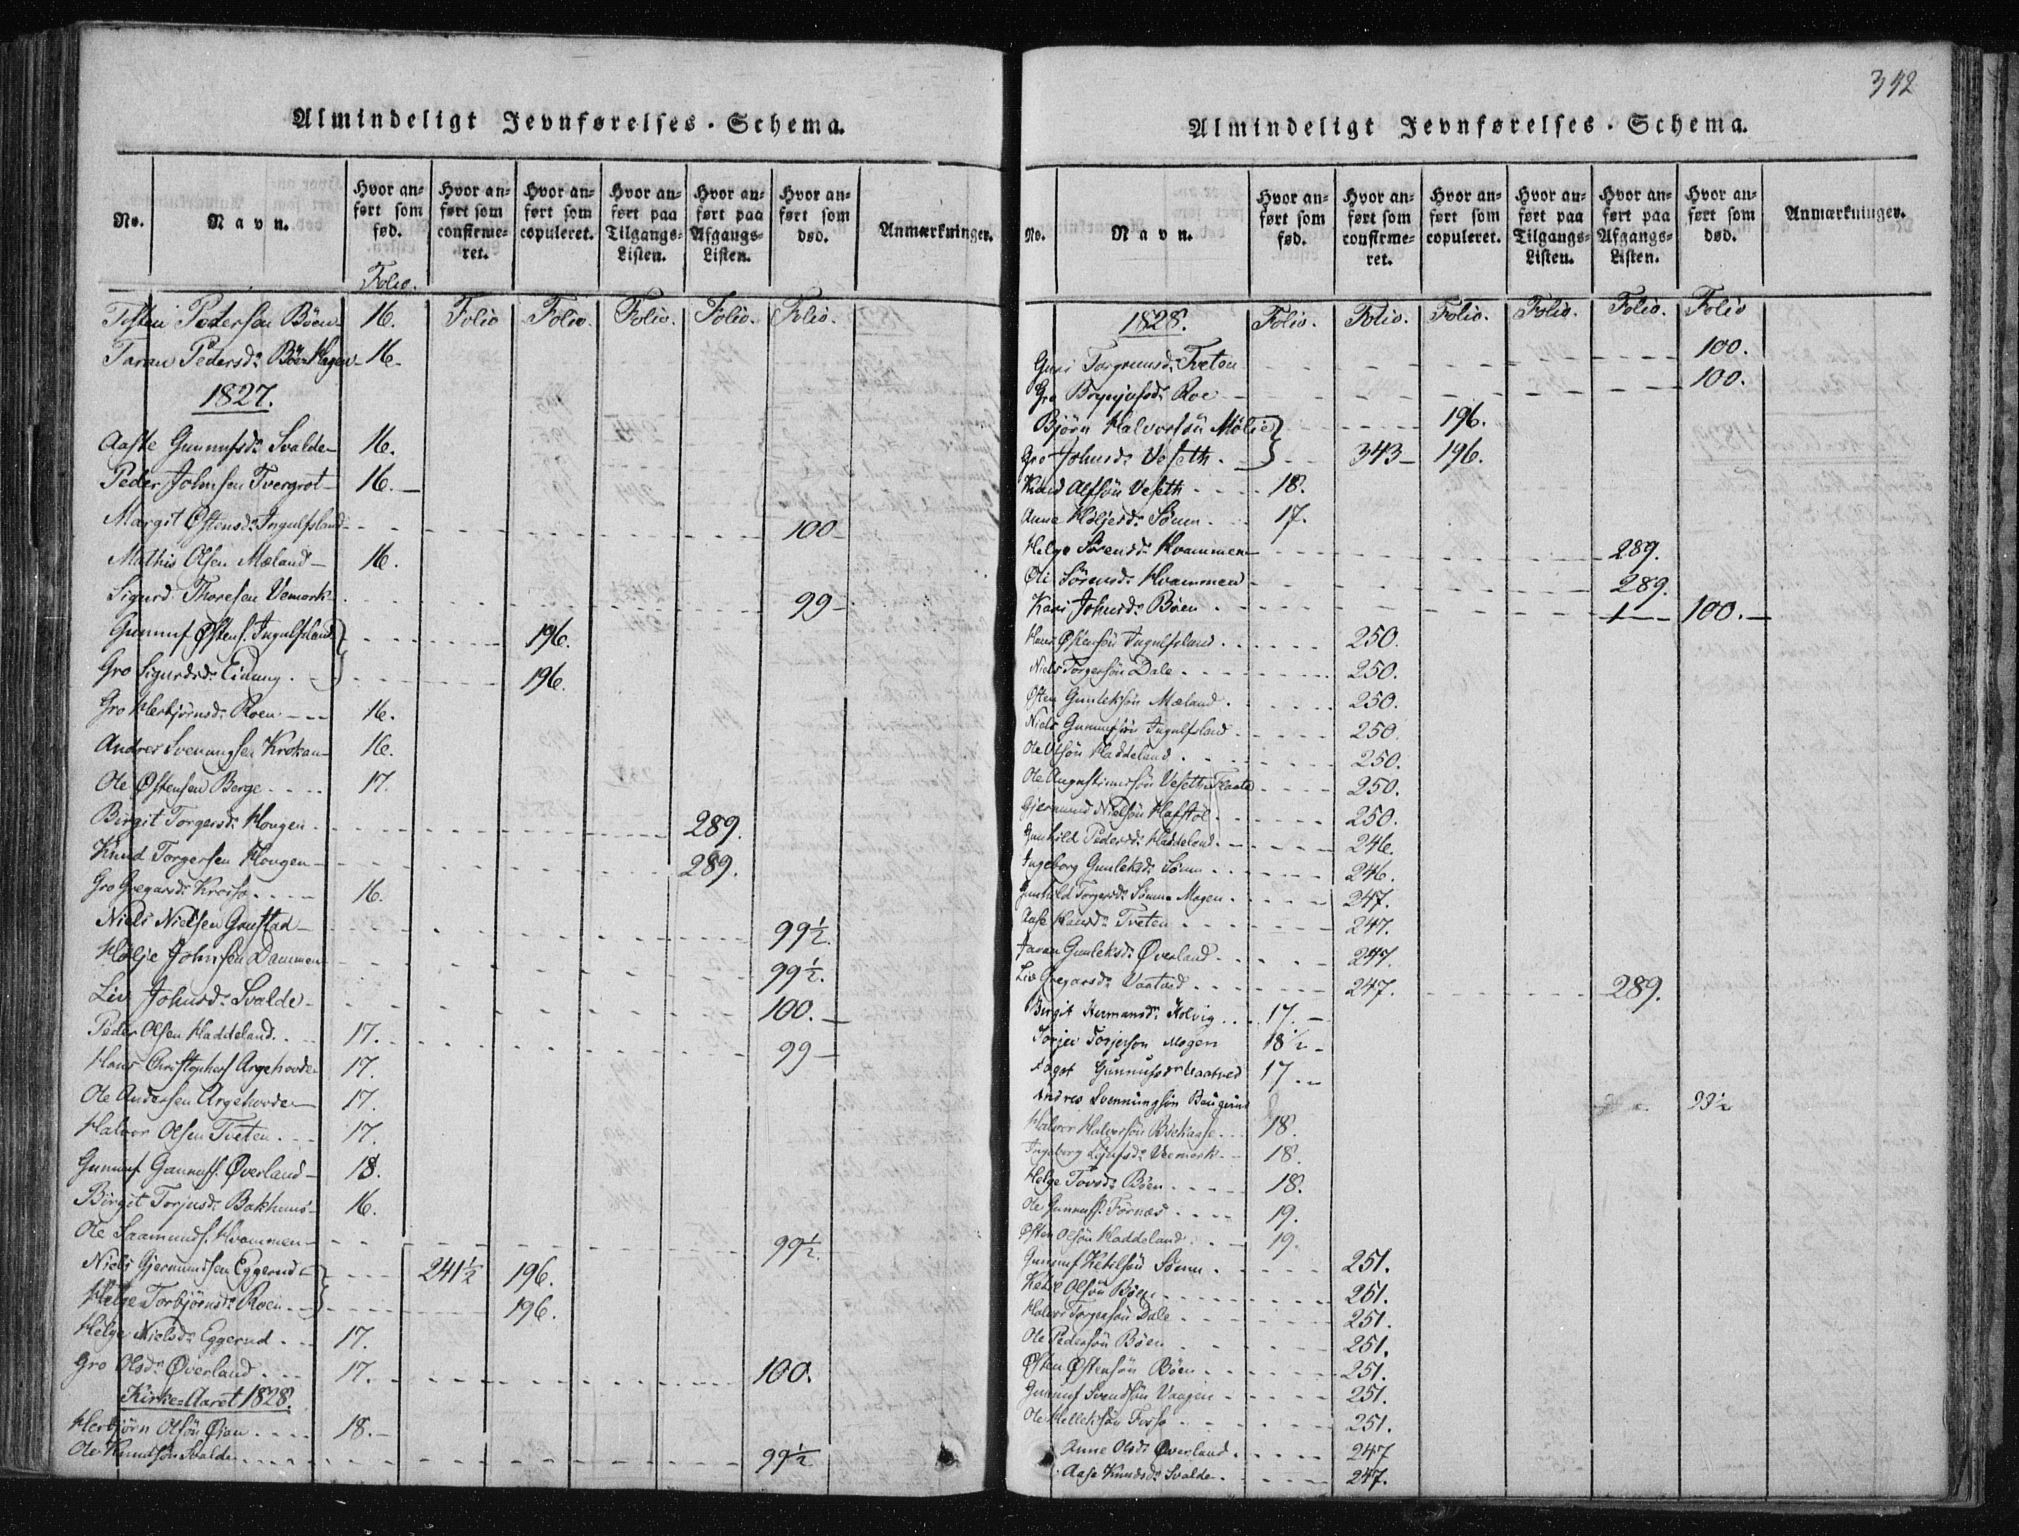 Almindeligt Jevnførelses-Schema.
No. Navn. Hvor anført som fød. Hvor anført som confirmeret. Hvor anført som copuleret. Hvor anført paa Tilgangs-Listen. Hvor anført paa Afgangs-Listen. Hvor anført som død. Anmærkninger.
Folio.
Tosten Pedersen Bøen 16. Folio Folio. Folio. Folio. Folio.
Taran Pedersdr Bøen Hagen 16.
1827.
Aaste Gunnufsdr Svalde 16.
Peder Johnsen Tvergrot 16.
Margit Østensdr Ingulfsland 100
Mathis Olsen Mæland 16.
Sigurd Thoresen Vemork 99
Gunnuf Østens. Ingulfsland 196.
Gro Sigurdsdr 196.
Gro Herbjørnsdr Roen 16.
Andres Svenungsen Krokan 16.
Ole Østensen Berge 17.
Birgit Torgersdr Hougen 289.
Knud Torgersen Hougen 289.
Gro Gregarsdr 16.
Niels Nielsen Graffad 99½.
Hølje Johnsen Dammen 99½.
Liv Johnsdr Svalde 100.
Peder Olsen Haddeland 17. 99
Hans Christophers Argehovde 17.
Ole Andersen Argehovde 17.
Halvor Olsen Tveten 17.
Gunnuf Gunnufs. Øverland 18.
Birgit Torjusdr Bakhuus 16.
Ole Saamunds. Hvammen 99½.
Niels Gjermundsen Eggerud 241½ 196.
Helge Torbjørnsdr Roen 196.
Helge Nielsdr Eggerud 17.
Gro Olsdr Øverland 17. 100.
Kirke-Aaret 1828.
Herbjørn Olsøn Øian 18.
Ole Knudsøn Svalde 99½
342
Almindeligt Jevnførelses-Schema.
No. Navn. Hvor anført som fød. Hvor anført som confirmeret. Hvor anført som copuleret. Hvor anført paa Tilgangs-Listen. Hvor anført paa Afgangs-Listen. Hvor anført som død. Anmærkninger.
1828. Folio. Folio. Folio. Folio. Folio. Folio
Guri Torgrimsdr Tveten 100.
Gro Brynjulfsdr Roe 100.
Bjørn Halvorsøn Mølie 196.
Gro Johnsdr Veseth 343 196.
Knud Alfsøn Veseth 18.
Anne Høljesdr Sønn 17.
Helge Sørensdr Hvammen 289.
Oli Sørensdr Hvammen 289.
Kari Johnsdr Bøen 1 100.
Hans Østensøn Ingulfsland 250.
Niels Torgersøn Dale 250.
Østen Gunleksøn Mæland 250.
Niels Gunnufsøn Ingulfsland 250.
Ole Olsøn Haddeland 250.
Ole Augustinusøn Veseth Flaata 250.
Gjermund Nielsøn Hafstøl 250.
Gunhild Pedersdr Haddeland 246.
Ingeborg Gunleksdr Sønn 246.
Gunhild Torgersdr Sønn Mogen 247.
Aase Hansdr Tveten 247.
Taran Gunleksdr Øverland 247.
Liv Gregarsdr Vaatved 247. 289.
Birgit Hermansdr Kolvig 17.
Torjer Torjerson Mogen 18½
Aagot Gunnufsdr Vaatved 17.
Andres Svenningsøn Baugerud 99½
Halvor Halvorsøn 18.
Ingeborg Vemork 18.
Helge Tovsdr Bøen 18.
Ole Gunnufs. Førnæs 19.
Østen Olsøn Haddeland 19.
Gunnuf Ketilsøn Sønn 251.
Ketil Olsøn Bøen 251.
Halvor Torgersøn Dale 251.
Ole Pedersøn Bøen 251.
Østen Østensøn Bøen 251.
Gunnuf Svendsøn Vaagen 251.
Ole Helleksøn Forsø 251.
Anne Olsdr Øverland 247
Aase Knudsdr Svalde 247.